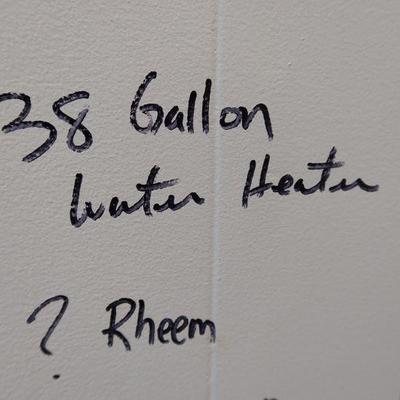 38 Gallon
Water Heater
? Rheem